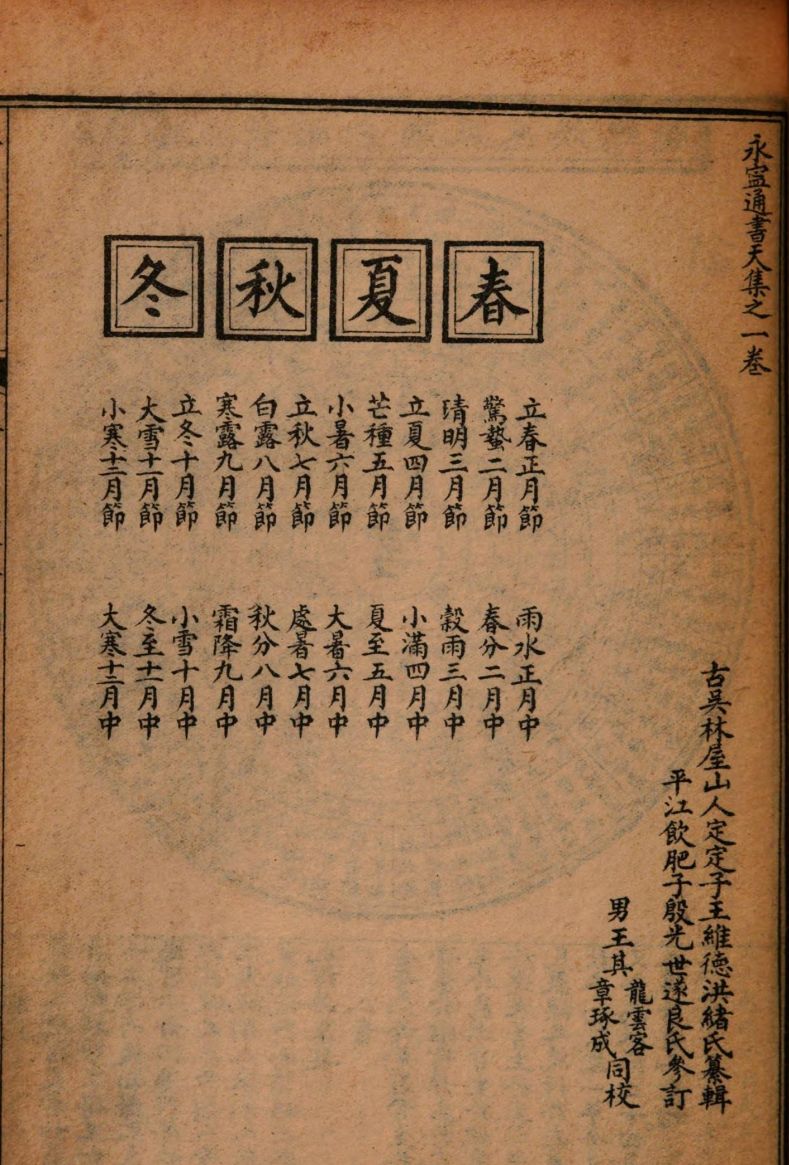 永寍通書天集之一卷
古吳林屋山人定定子王維德洪緒氏纂輯
平江飲肥子殷光世遂良氏參訂
男王其龍雲客章琢成同校
春
夏
秋
冬
立春正月節 雨水正月中
驚蟄二月節 春分二月中
清明三月節 穀雨三月中
立夏四月節 小滿四月中
芒種五月節 夏至五月中
小暑六月節 大暑六月中
立秋七月節 處暑七月中
白露八月節 秋分八月中
寒露九月節 霜降九月中
立冬十月節 小雪十月中
大雪十一月節 冬至十一月中
小寒十二月節 大寒十二月中